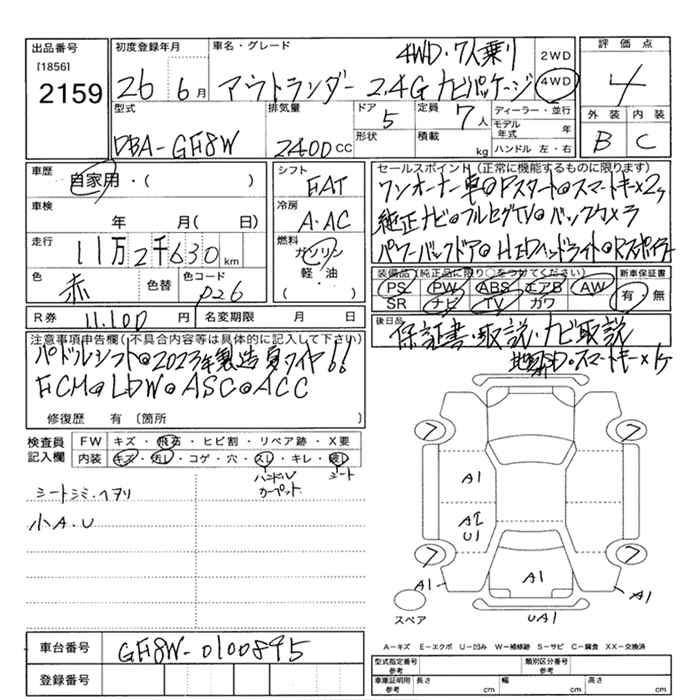 出品番号
[1856]
2159
初度登録年月
26 6月
車名・グレード
4WD・7人乗り
アウトランダー 2.4G ナビパッケージ
2WD
4WD
評価点
4
外装 内装
B C
型式
DBA-GF8W
排気量
2400cc
ドア
5
形状
定員
7人
積載
kg
ディーラー・並行
モデル年式 年
ハンドル 左・右
車歴
自家用・( )
車検
年 月( 日)
走行
11万2千630km
色
赤
色替
色コード
P26
シフト
FAT
冷房
A・AC
燃料
ガソリン
軽・油
( )
セールスポイント(正常に機能するものに限ります)
ワンオーナー車。Pスタート。スマートキー×2ヶ
純正ナビ。フルセグTV。バックカメラ
パワーバックドア。HIDヘッドライト。Rスポイラー
装備品(純正品に限り○をつけてください)
PS PW ABS エアB AW
SR ナビ TV カワ
新車保証書
有・無
R券 11.100円
名変期限 月 日
後日品
保証書・取説・ナビ取説
・スマートキー×1ヶ
注意事項申告欄(不具合内容等は具体的に記入して下さい)
パドルシフト。2023年製造夏タイヤ!!
FCM。LDW。ASC。ACC
修復歴 有 〔箇所 〕
検査員記入欄
FW キズ・飛石・ヒビ割・リペア跡・X要
内装 キズ・汚レ・コゲ・穴・スレ・キレ・破レ
ハンドル
カーペット
シート
シートシミ・ヘタリ
小A.U
A1
A2
U1
A1
A1
A1
UA1
スペア
車台番号
GF8W-0100895
登録番号
A-キズ E-エクボ U-凹み W-補修跡 S-サビ C-腐食 XX-交換済
型式指定番号
参考
類別区分番号
参考
車庫証明用
参考
長さ cm
幅 cm
高さ cm